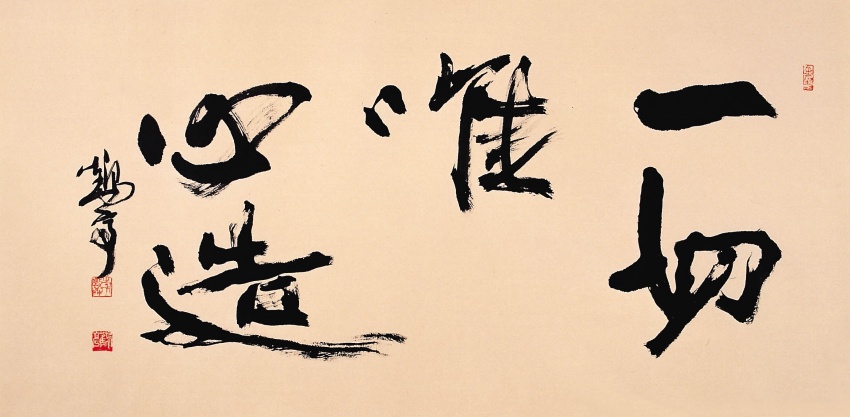 一切
唯
心造